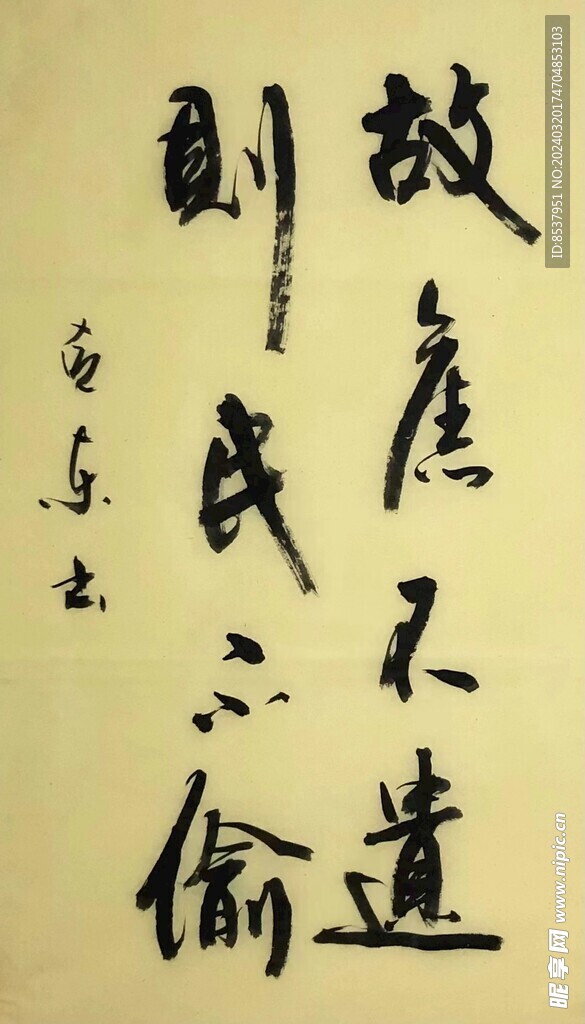 故舊不遺
則民不偷
东书
ID:8537951 NO:20240320174704853103
昵享网 www.nipic.cn